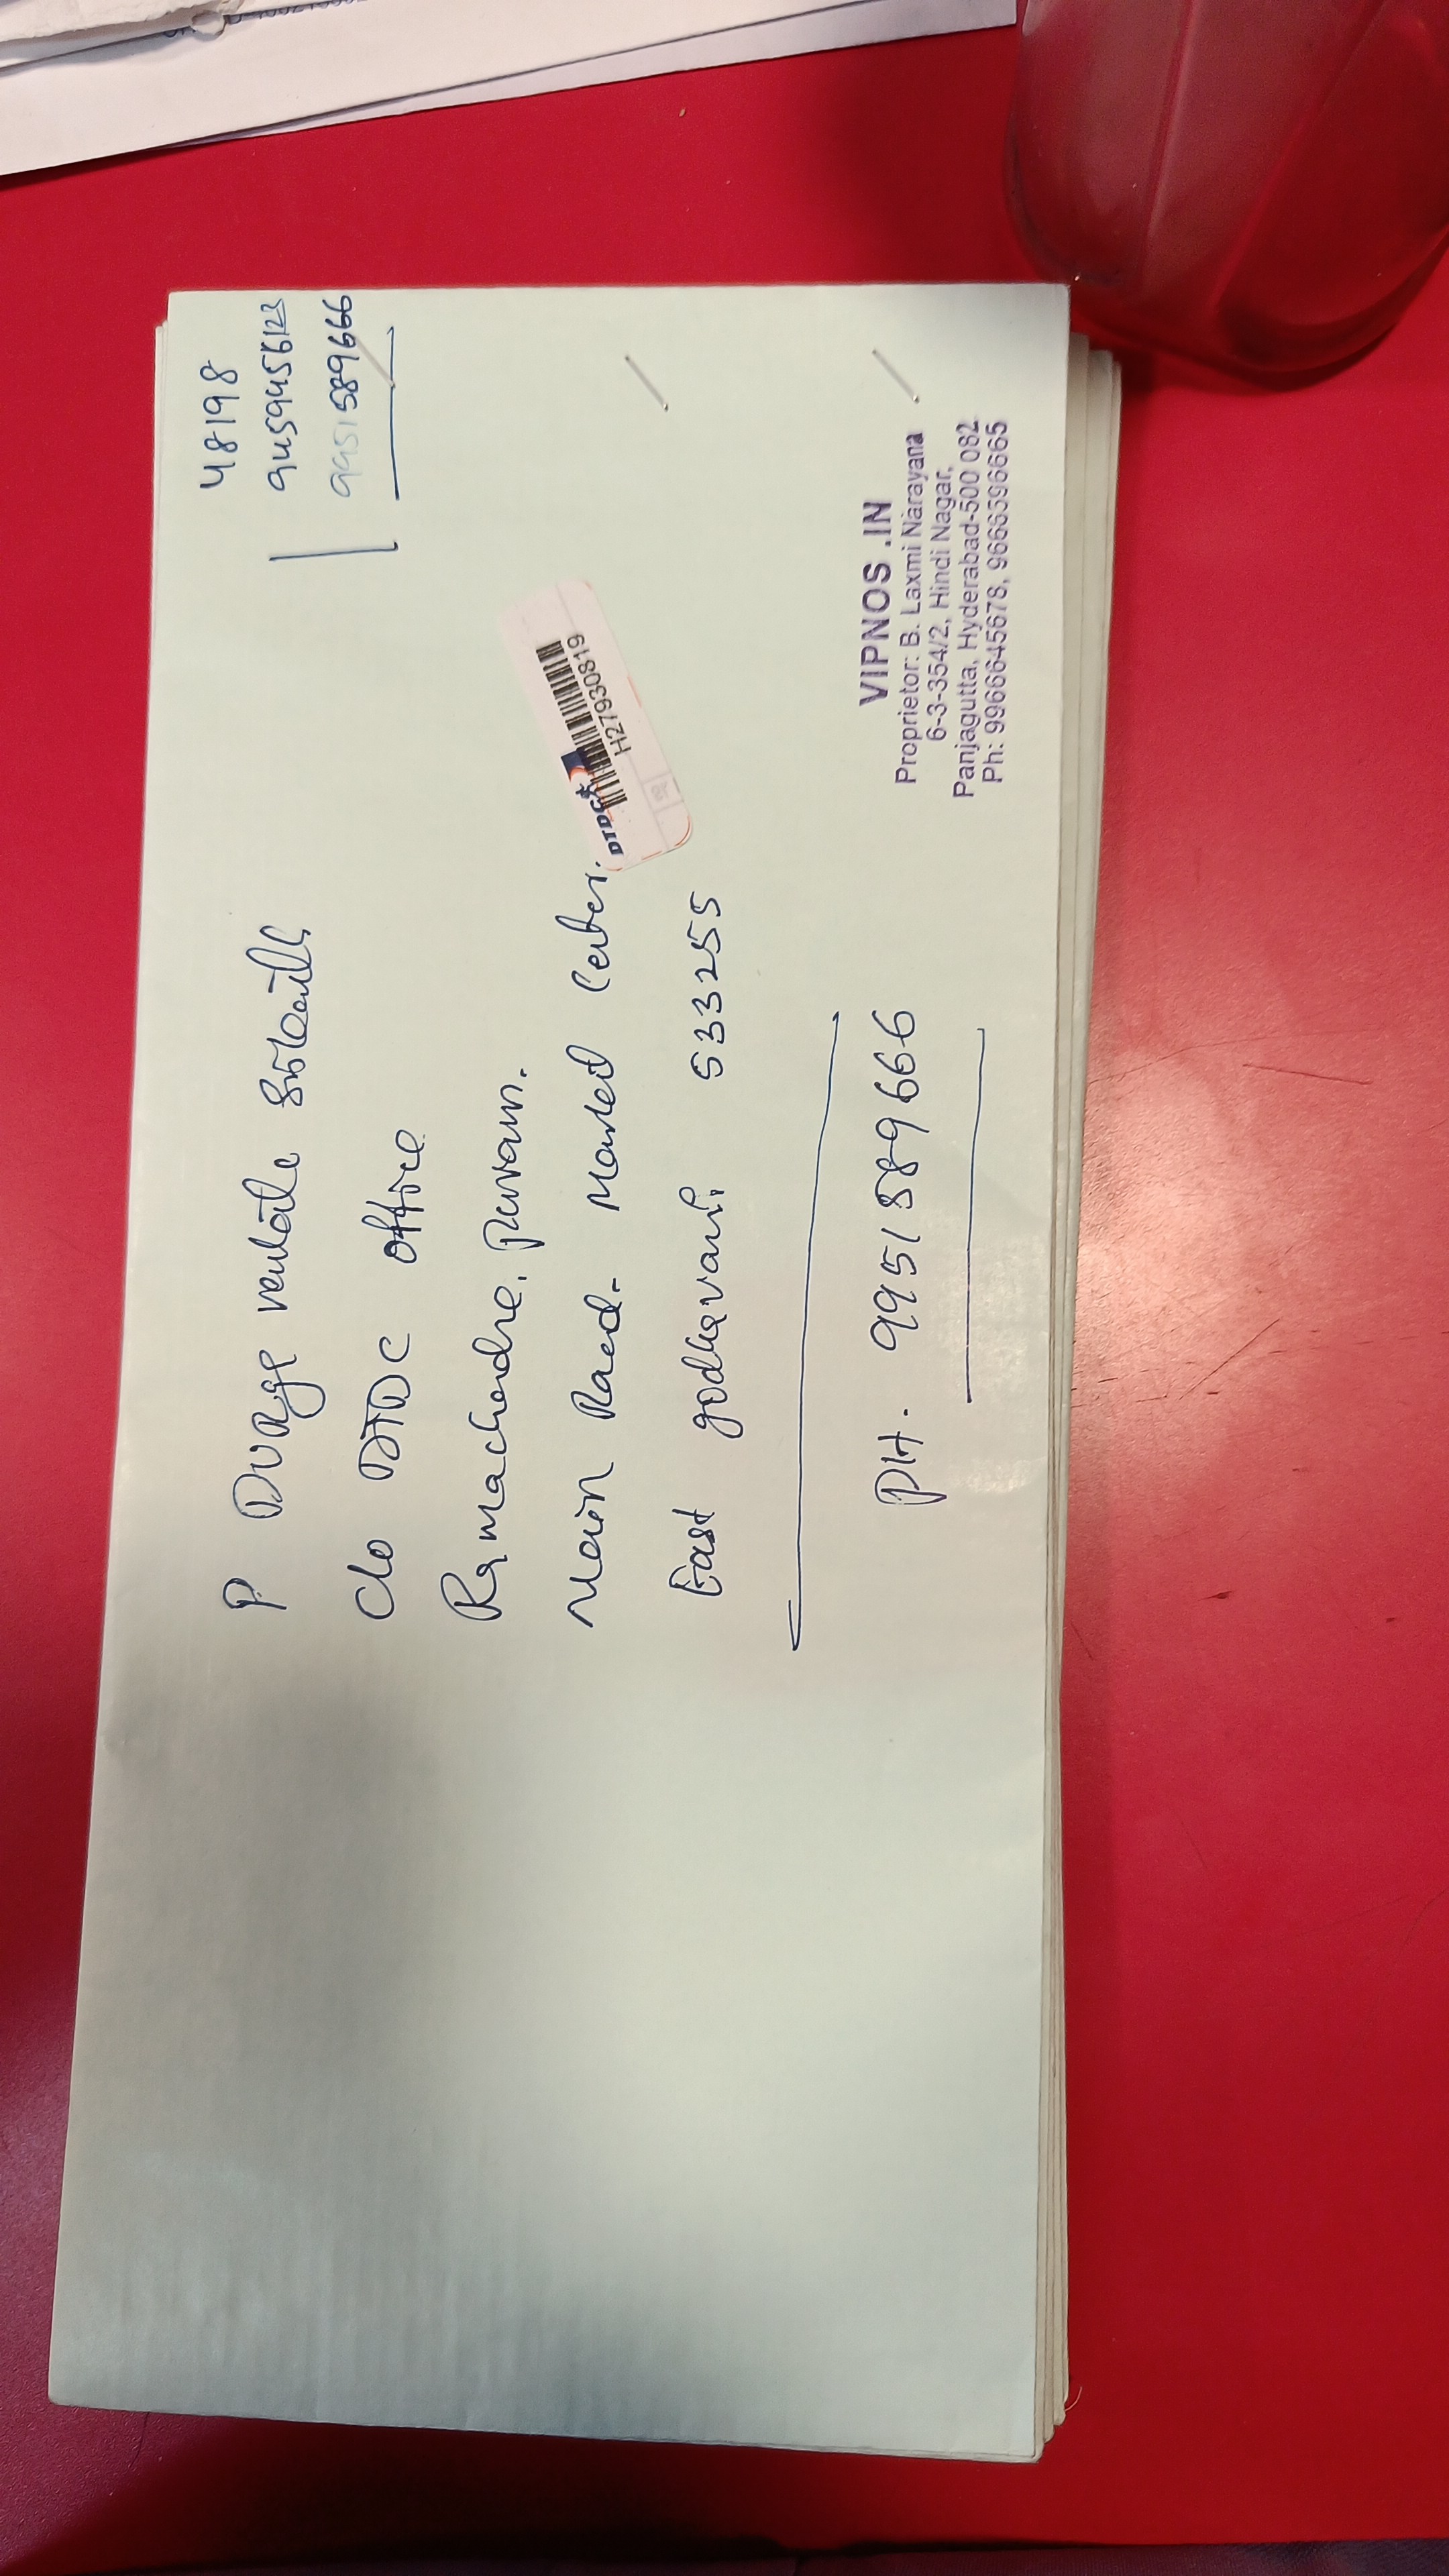 48198
9459456123
9951589666
P Durga venkata
C/o DTDC office
Ramachandra. puram.
Main Road. Market Center.
East godhavari. 533255
PH. 9951589666
DTDC
H27930819
VIPNOS .IN
Proprietor: B. Laxmi Narayana
6-3-354/2, Hindi Nagar,
Panjagutta, Hyderabad-500 082
Ph: 9966645678, 9666396665